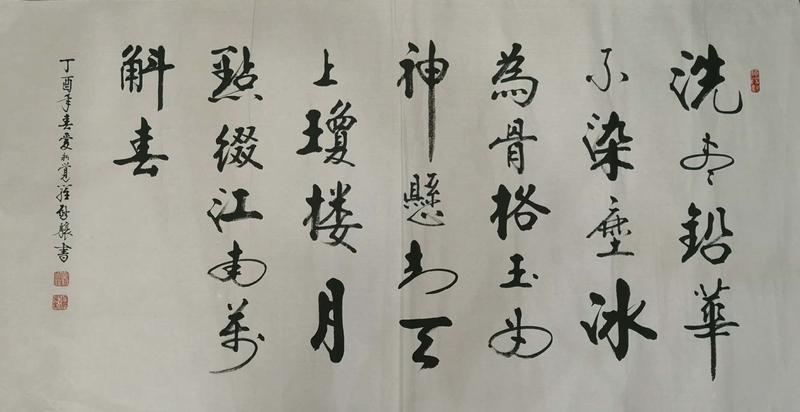 洗盡鉛華
不染塵冰
為骨格玉為
神懸知天
上瓊楼月
點綴江南萬
斛春
丁酉年春愛新覺羅啟驤書